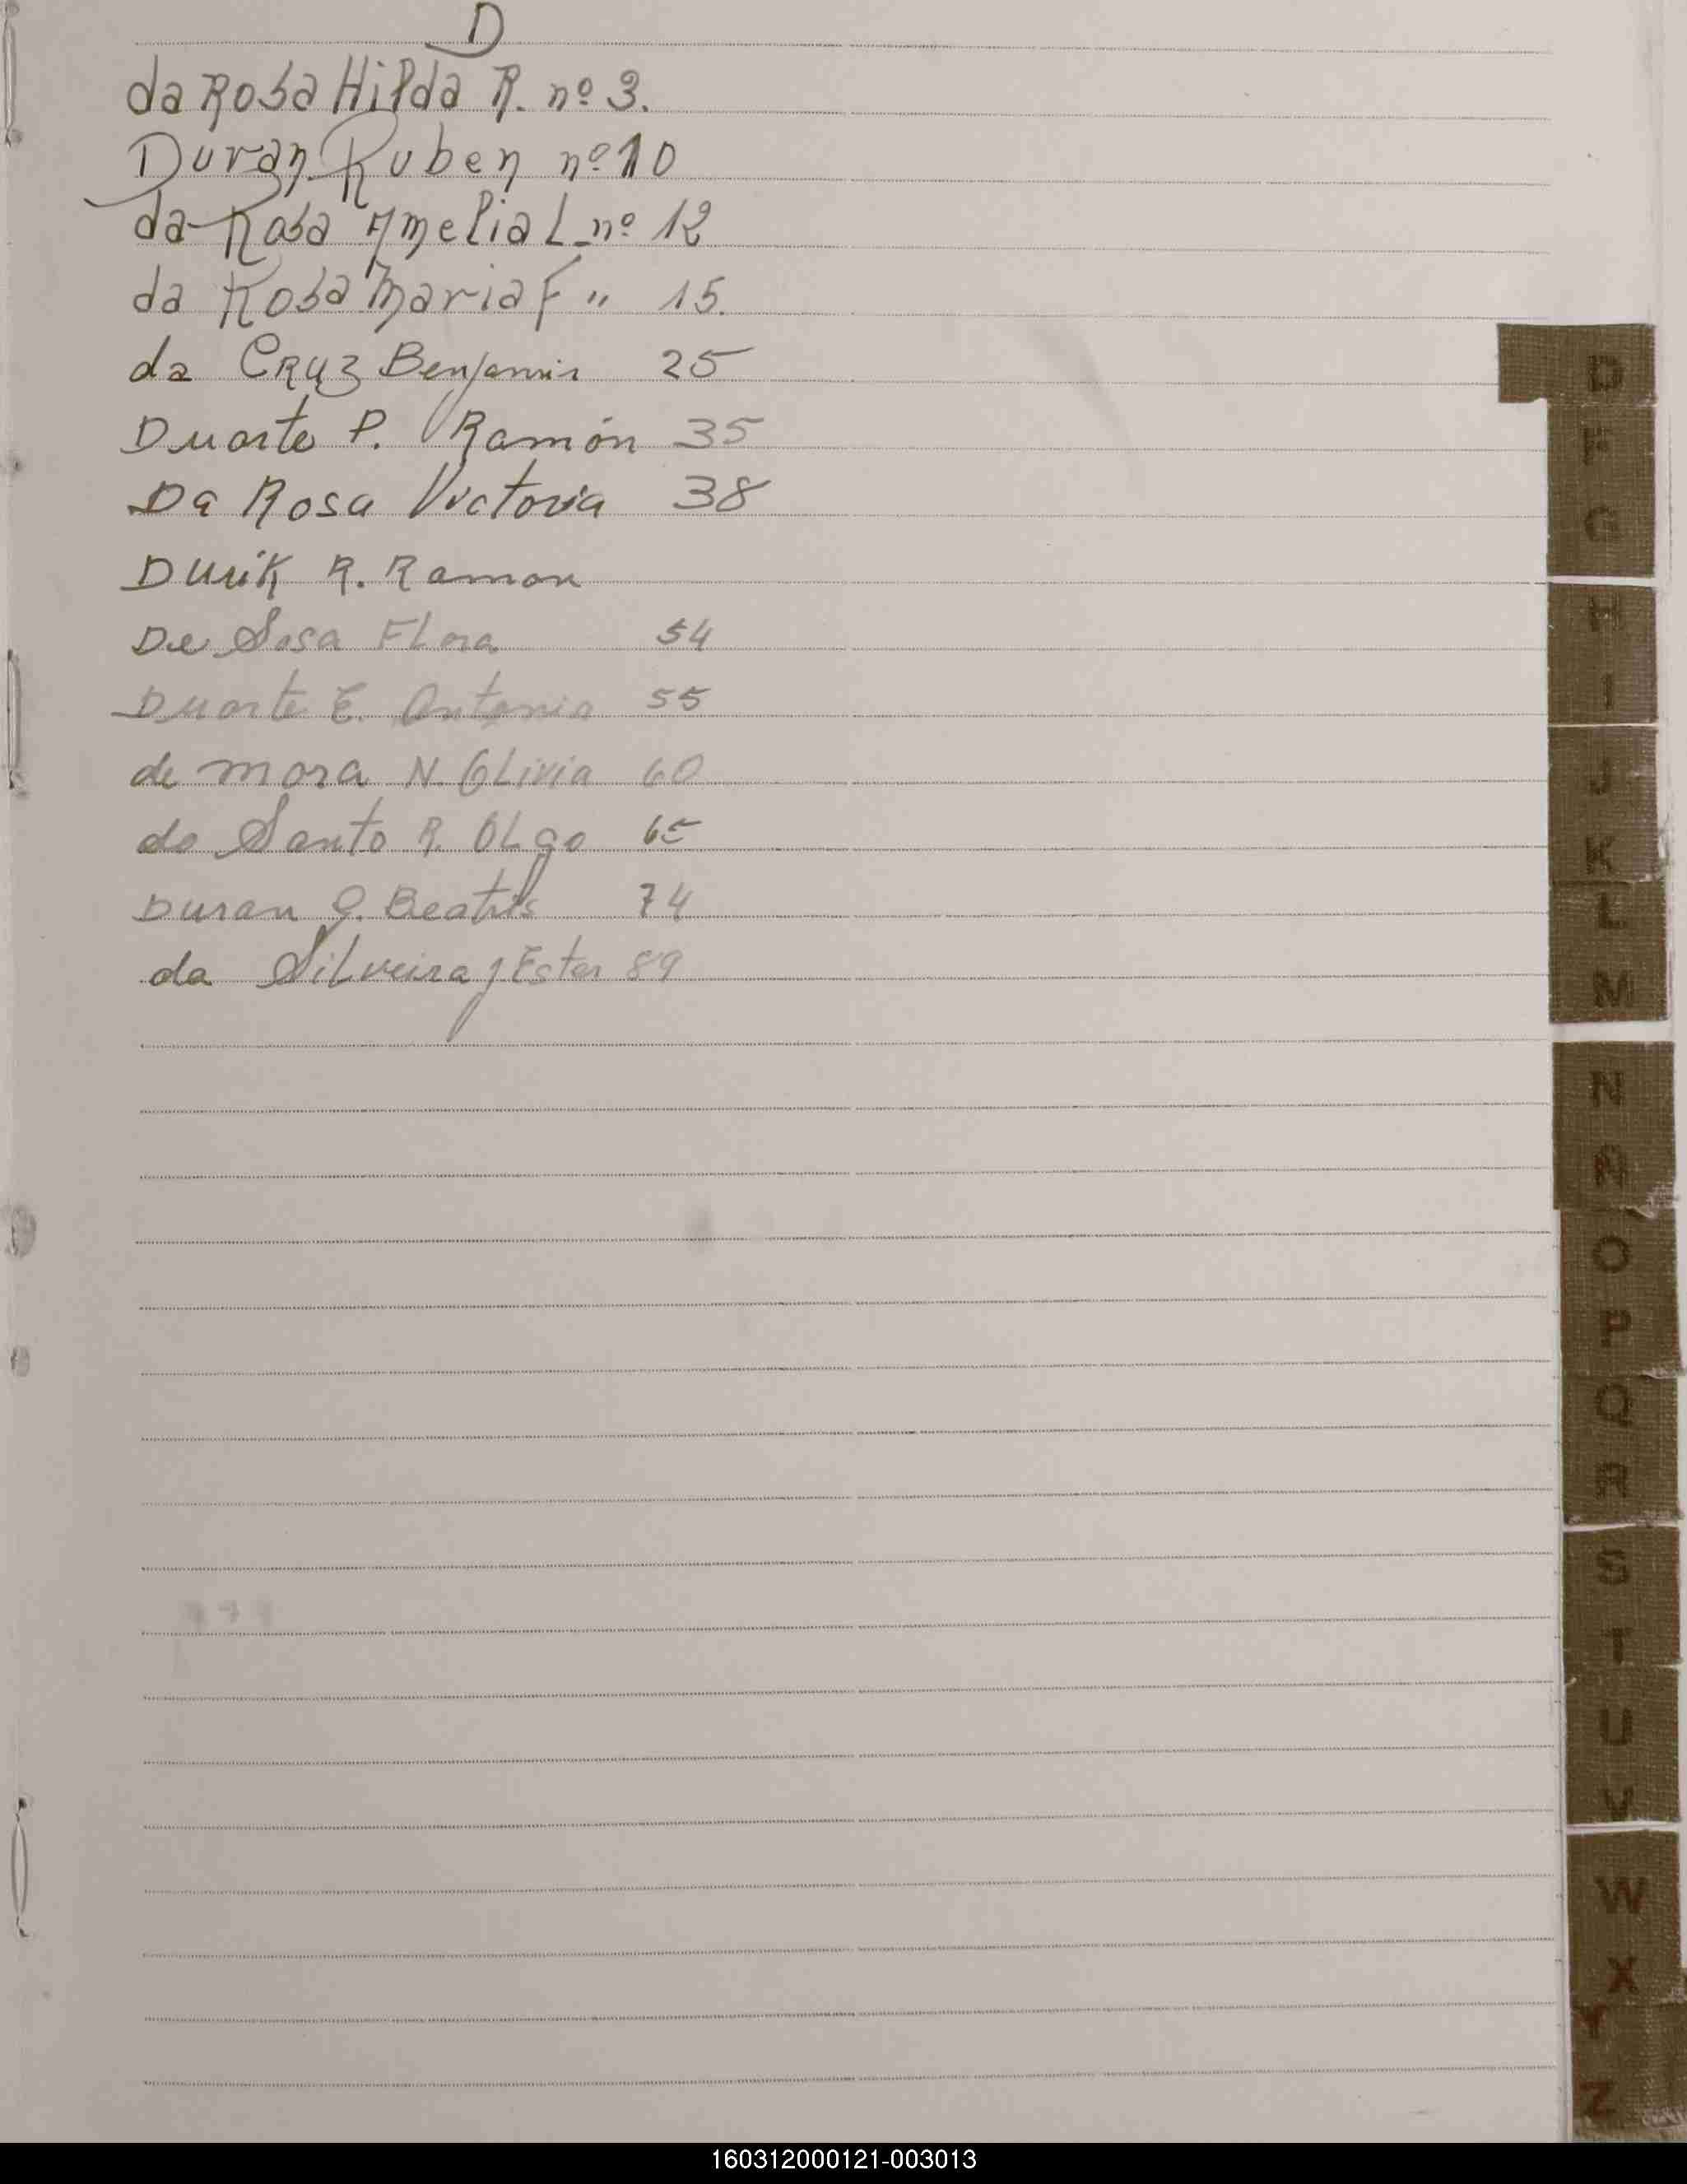 D
da Rosa Hilda R. nº 3.
Duran Ruben nº 10
da Rosa Amelia L. nº 12
da Rosa Maria F " 15.
da Cruz Benjamin 25
Duarte P. Ramón 35
Da Rosa Victoria 38
Durik R. Ramon
De Sosa Flora 54
Duarte E. Antonio 55
de mora N. Olivia 60
do Santo R. Olga 65
Duran Q. Beatris 74
da Silveira J Ester 89
D
F
G
H
I
J
K
L
M
N
Ñ
O
P
Q
R
S
T
U
V
W
X
Y
Z
160312000121-003013